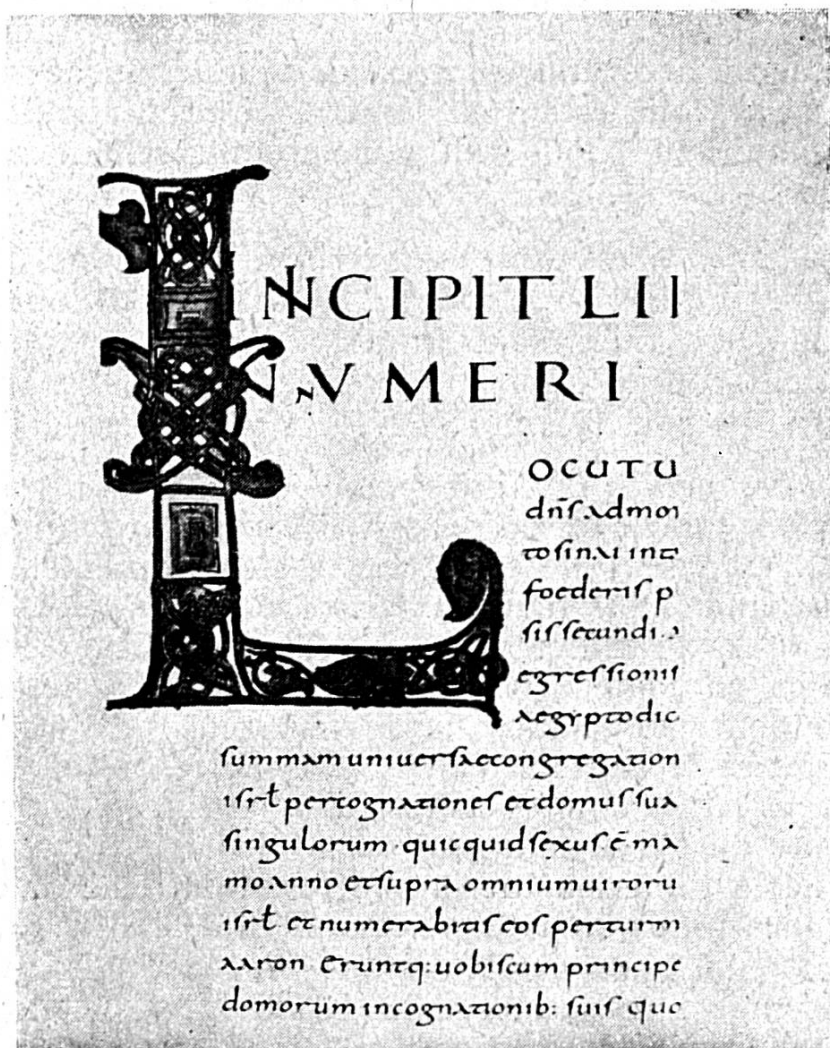 INCIPIT LII
NUMERI
LOCUTU
dn̄s admon
to sinai int
foederis p
sis secundi
egressionis
aegypto dic
summam universae congregation
isrł per cognationes et domus sua
singulorum · quicquid sexus ē ma
mo anno et supra omnium uiroru
isrł et numerabitis eos per turm
aaron Eruntq: uobiscum principe
domorum in cognationib: suis quo